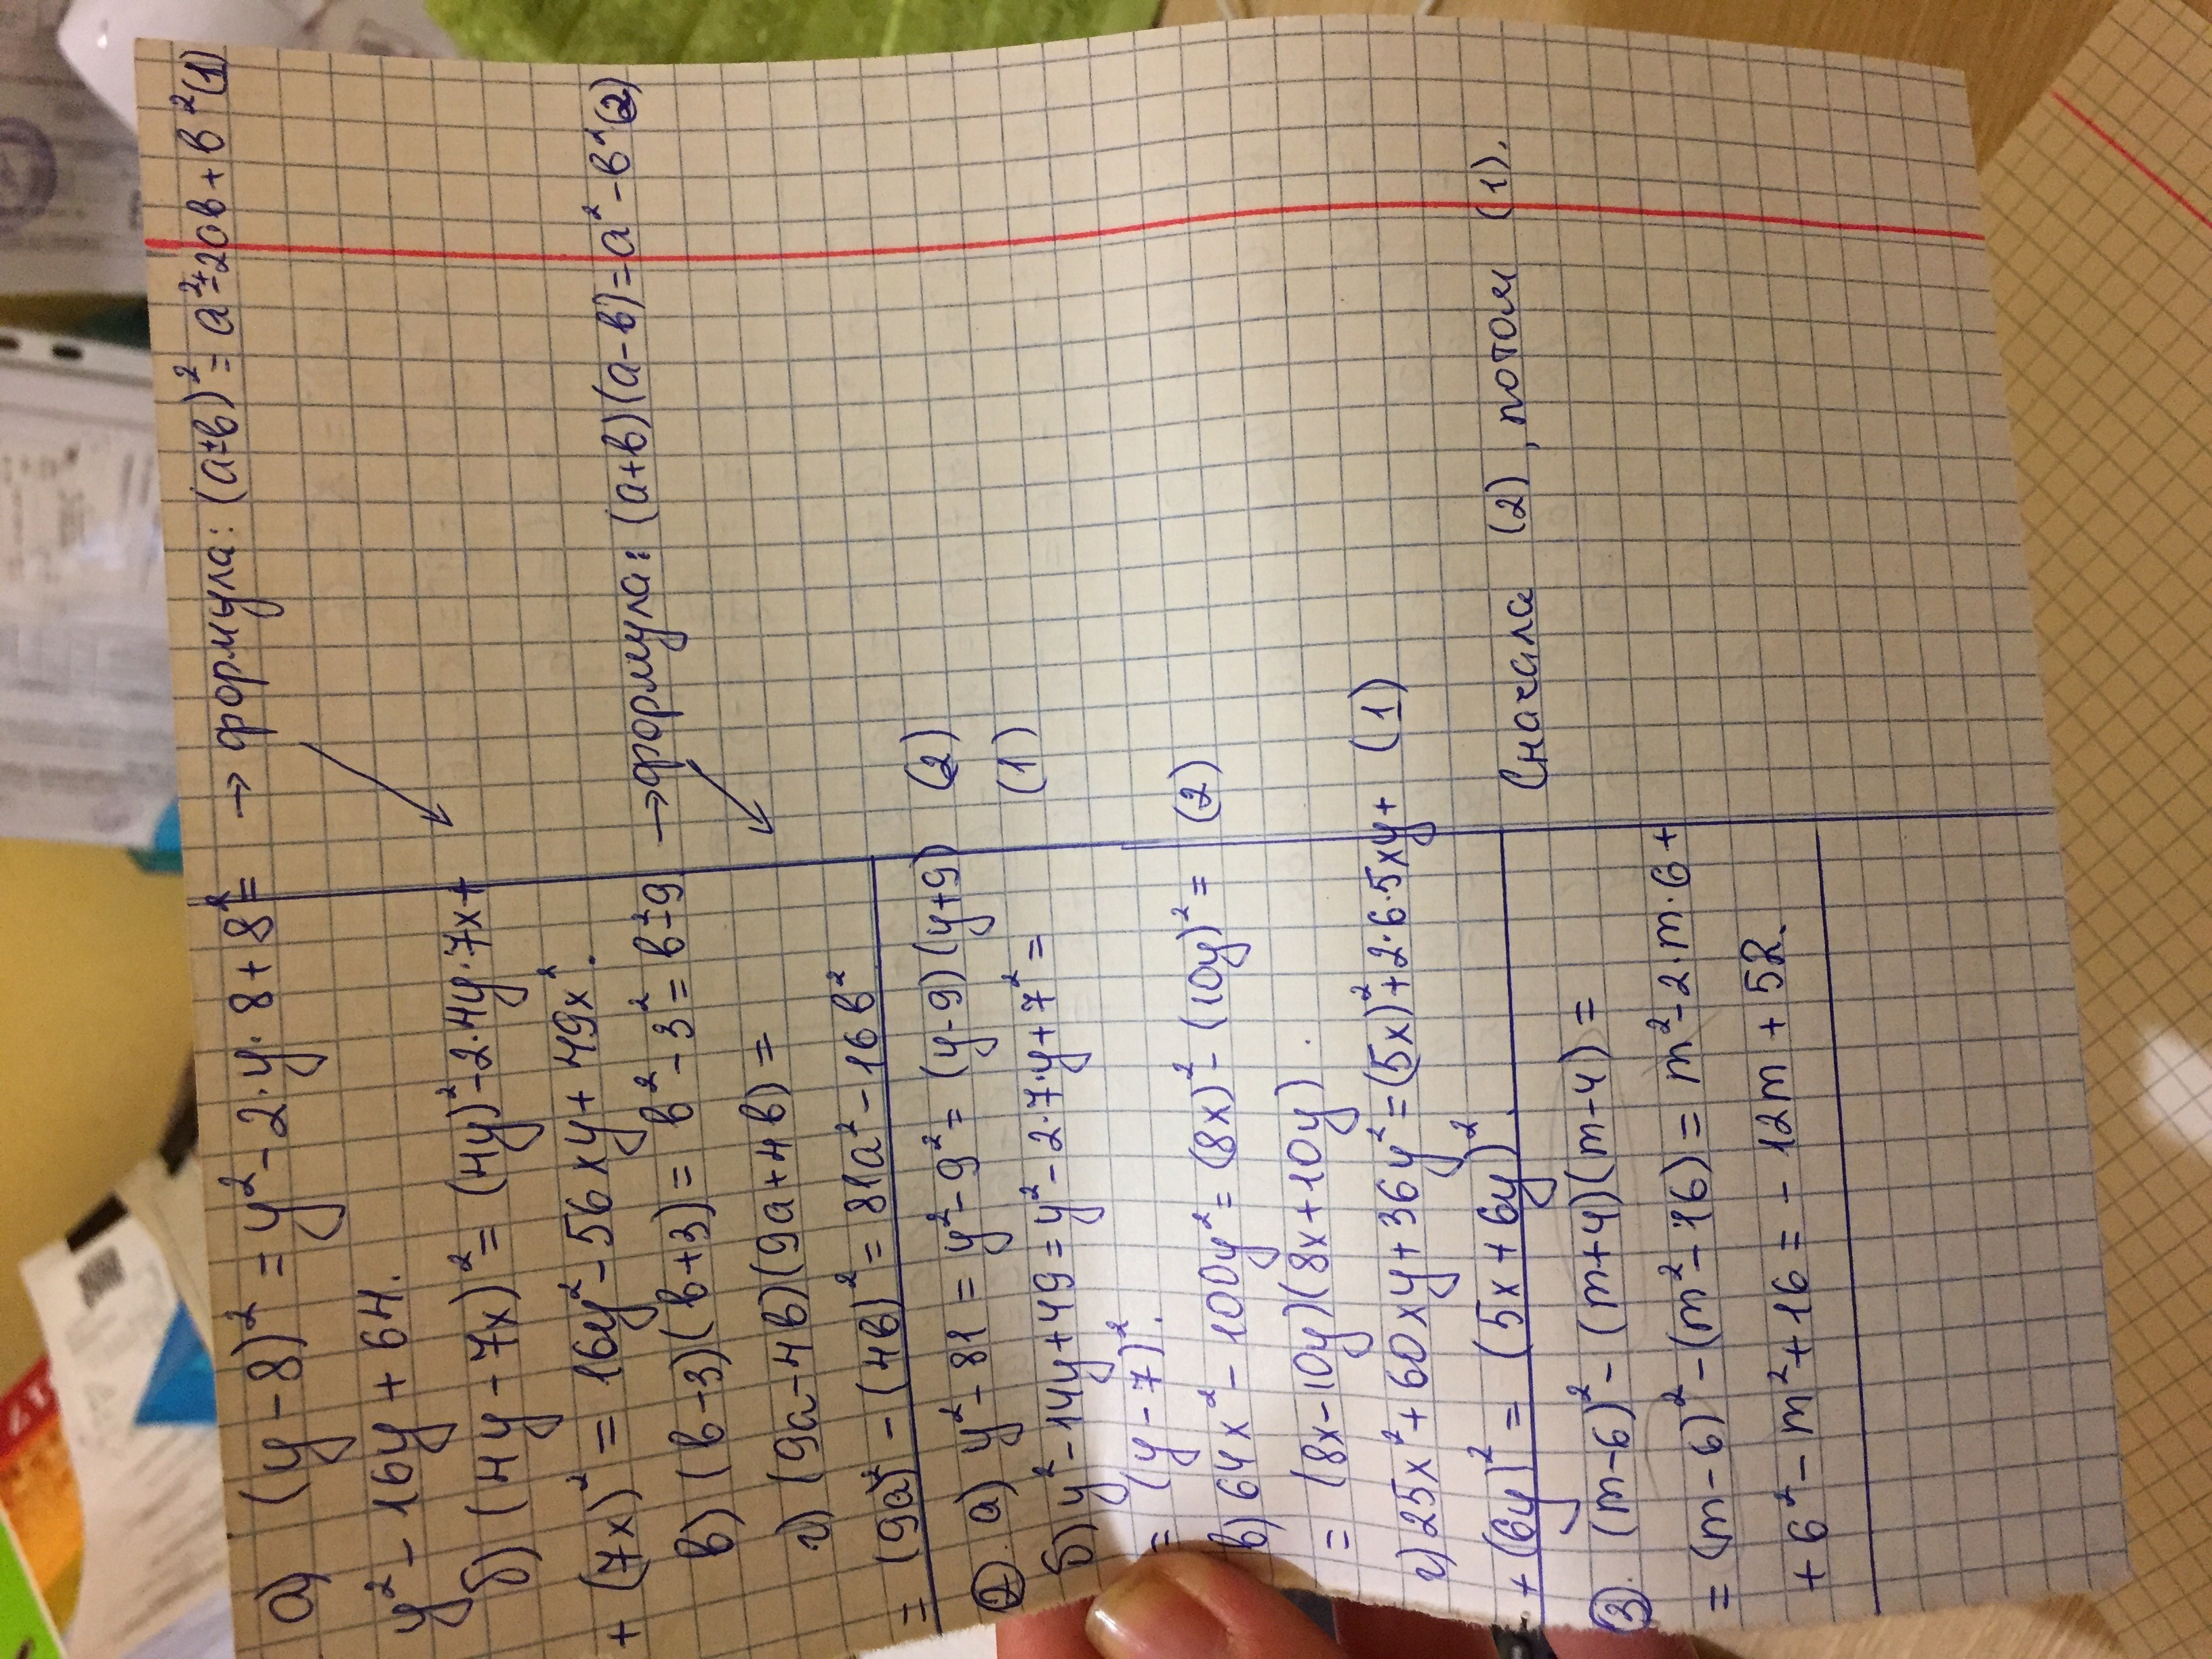 а) (y-8)² = y² - 2·y·8 + 8² = → формула: (а±в)² = а² ± 2ав + в² (1)
y² - 16y + 64.
б) (4y - 7x)² = (4y)² - 2·4y·7x +
+ (7x)² = 16y² - 56xy + 49x².
в) (в-3)(в+3) = в² - 3² = в² - 9 → формула: (а+в)(а-в) = а² - в² (2)
г) (9а-4в)(9а+4в) =
= (9а)² - (4в)² = 81а² - 16в²
2. а) y² - 81 = y² - 9² = (y-9)(y+9) (2)
б) y² - 14y + 49 = y² - 2·7·y + 7² = (1)
= (y - 7)².
в) 64x² - 100y² = (8x)² - (10y)² = (2)
= (8x-10y)(8x+10y).
г) 25x² + 60xy + 36y² = (5x)² + 2·6·5xy + (1)
+ (6y)² = (5x + 6y)².
3. (m-6)² - (m+4)(m-4) = Сначала (2), потом (1).
= (m-6)² - (m²-16) = m² - 2·m·6 +
+ 6² - m² + 16 = - 12m + 52.